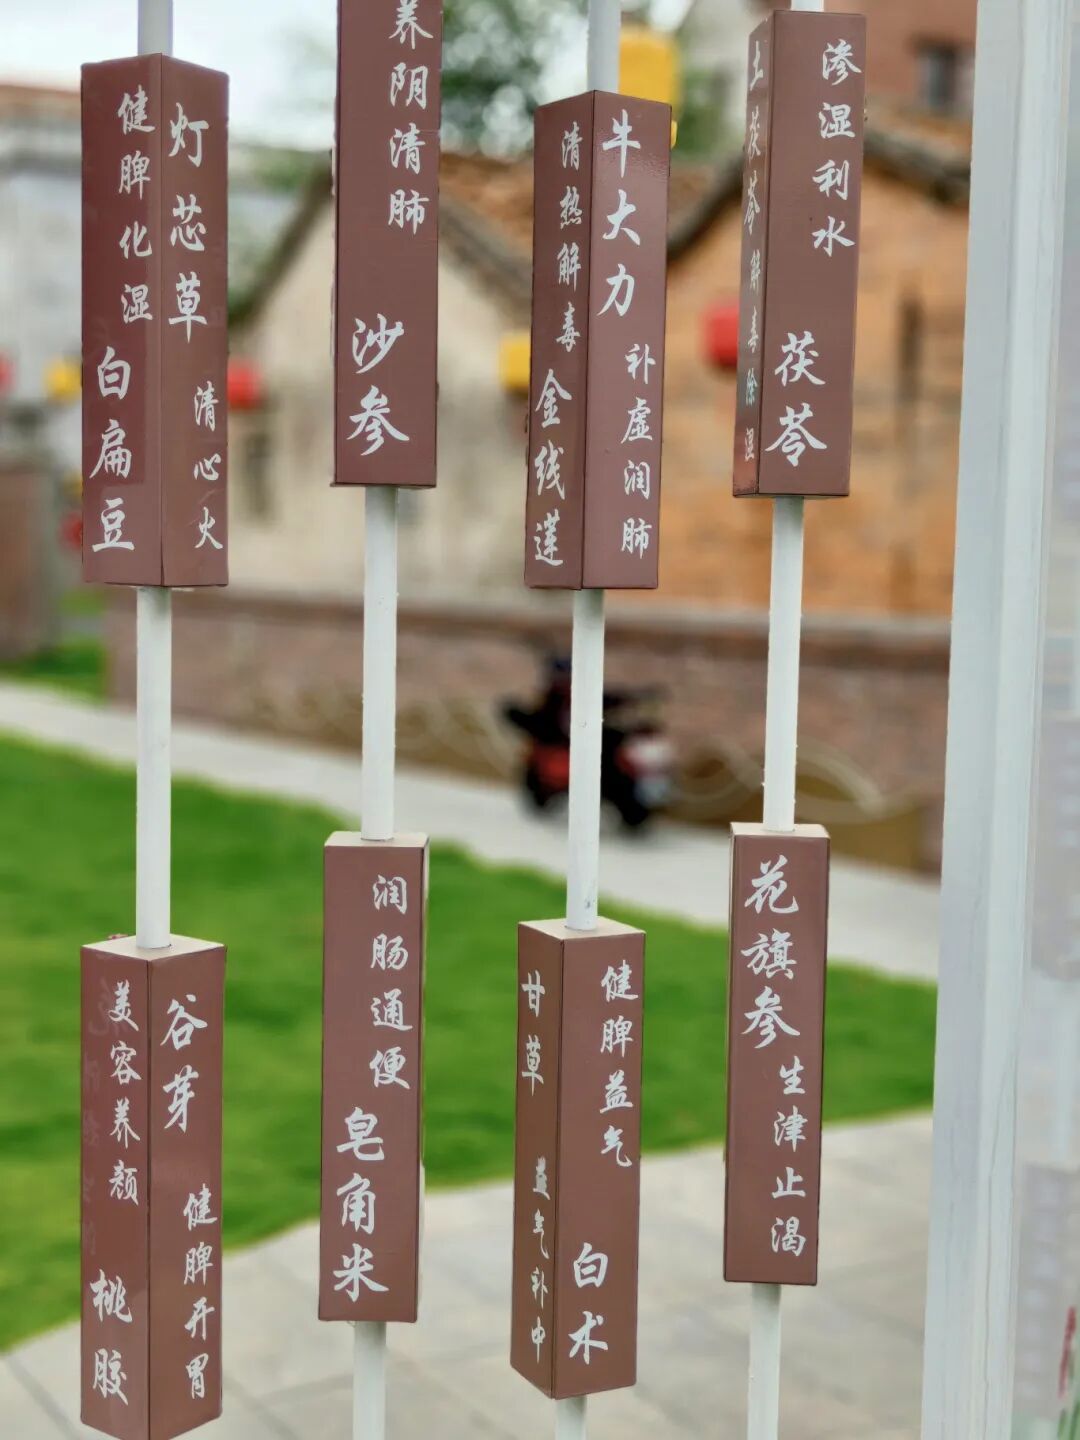 健脾化湿
白扁豆
灯芯草
清心火
养阴清肺
沙参
清热解毒
金线莲
牛大力
补虚润肺
土茯苓
解毒除湿
渗湿利水
茯苓
美容养颜
桃胶
谷芽
健脾开胃
润肠通便
皂角米
甘草
益气补中
健脾益气
白术
花旗参
生津止渴